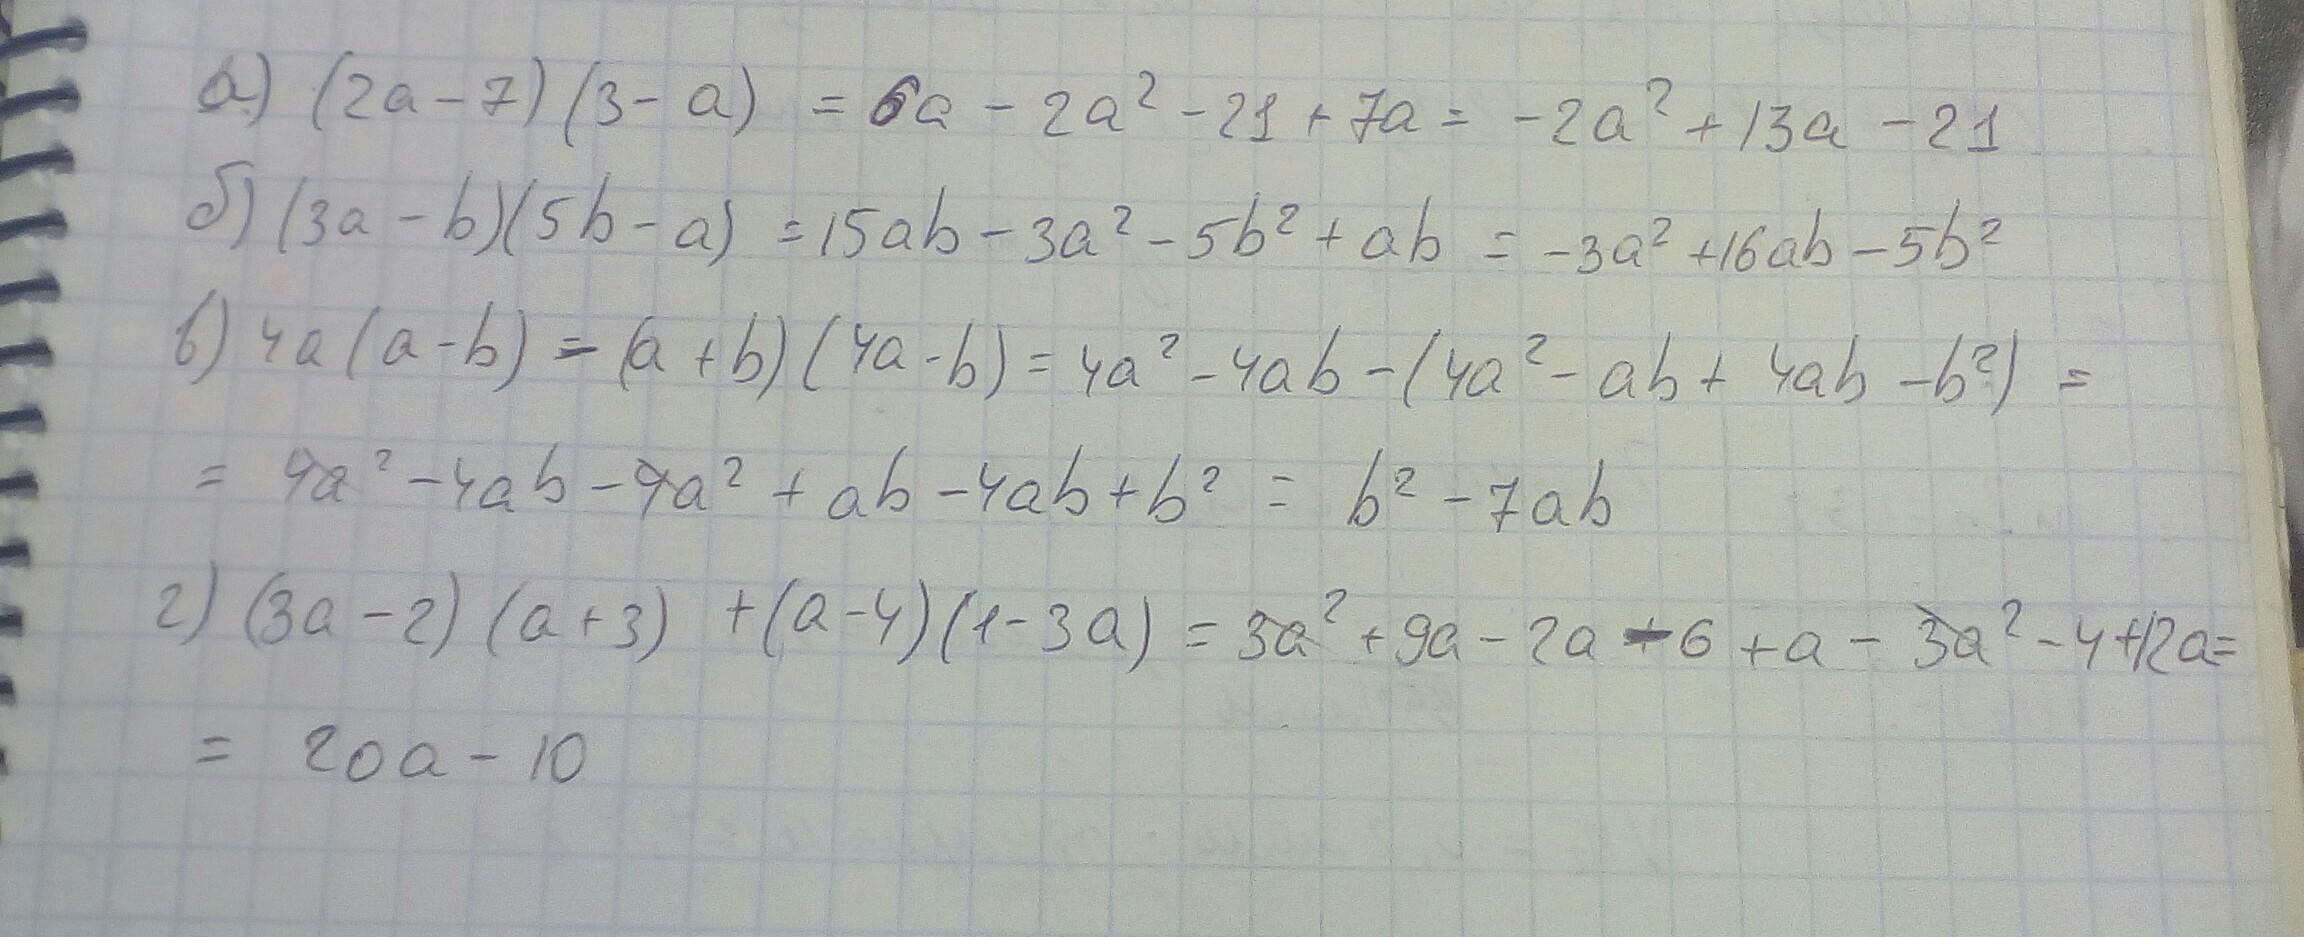 а) (2a - 7)(3 - a) = 6a - 2a² - 21 + 7a = -2a² + 13a - 21
б) (3a - b)(5b - a) = 15ab - 3a² - 5b² + ab = -3a² + 16ab - 5b²
в) 4a(a - b) - (a + b)(4a - b) = 4a² - 4ab - (4a² - ab + 4ab - b²) =
= 4a² - 4ab - 4a² + ab - 4ab + b² = b² - 7ab
г) (3a - 2)(a + 3) + (a - 4)(1 - 3a) = 3a² + 9a - 2a - 6 + a - 3a² - 4 + 12a =
= 20a - 10